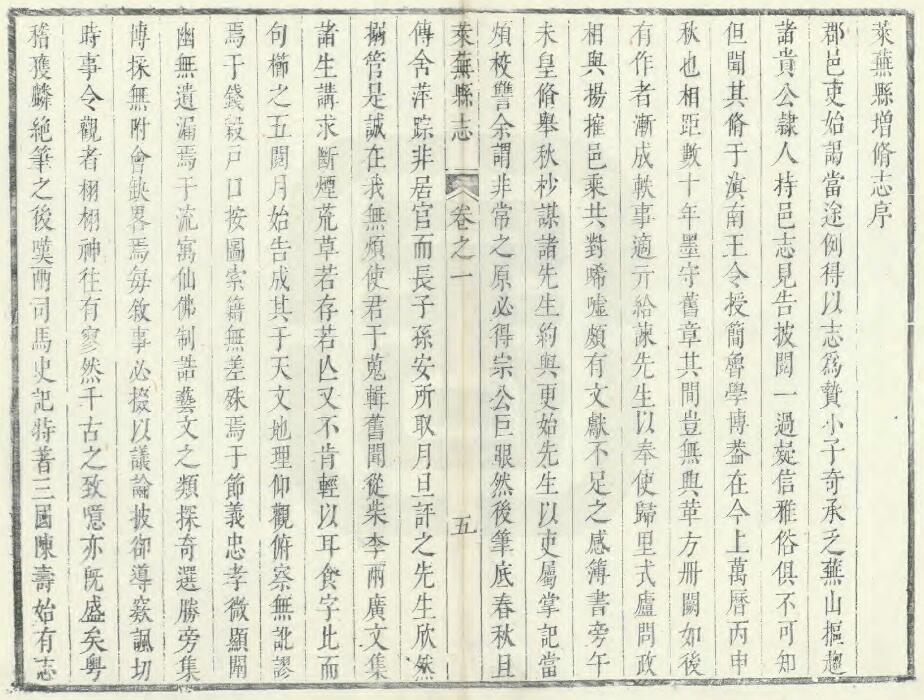 萊蕪縣增脩志序
郡邑吏始謁當途例得以志爲贄小子奇承乏蕪山摳趨
諸貴公隸人持邑志見告披閱一過疑信雅俗俱不可知
但聞其脩于滇南王令授簡魯學博葢在今上萬曆丙申
秋也相距數十年墨守舊章其間豈無興革方冊闕如後
有作者漸成軼事適亓給諫先生以奉使歸里式廬問政
相與揚搉邑乘共對唏噓頗有文獻不足之感簿書旁午
未皇脩舉秋杪謀諸先生約與更始先生以吏屬掌記當
煩校讐余謂非常之原必得宗公巨眼然後筆底春秋且
萊蕪縣志 卷之一 五
傳舍萍踪非居官而長子孫安所取月旦評之先生欣然
搦管是誠在我無煩使君于蒐輯舊聞從柴李兩廣文集
諸生講求斷煙荒草若存若亾又不肯輕以耳食字比而
句櫛之五閱月始告成其于天文地理仰觀俯察無訛謬
焉于錢穀戸口按圖索籍無差殊焉于節義忠孝微顯闡
幽無遺漏焉于流寓仙佛制誥藝文之類探奇選勝旁集
博採無附會缺畧焉每敘事必掇以議論披卻導窾諷切
時事令觀者栩栩神往有寥然千古之致噫亦旣盛矣粤
稽獲麟絶筆之後嘆兩司馬史記特著三國陳壽始有志